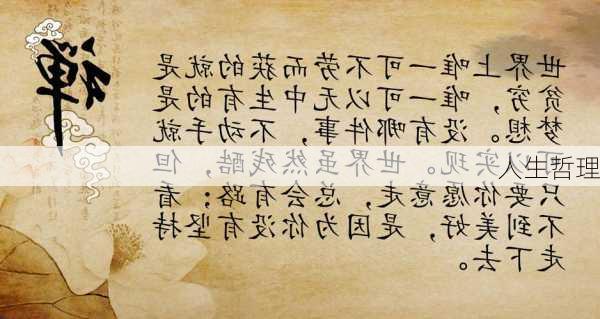 禪
世界上唯一可不劳而获的就是
贫穷，唯一可以无中生有的是
梦想。没有哪件事，不动手就
可以实现。世界虽然残酷，但
只要你愿意走，总会有路；看
不到美好，是因为你没有坚持
走下去。
人生哲理